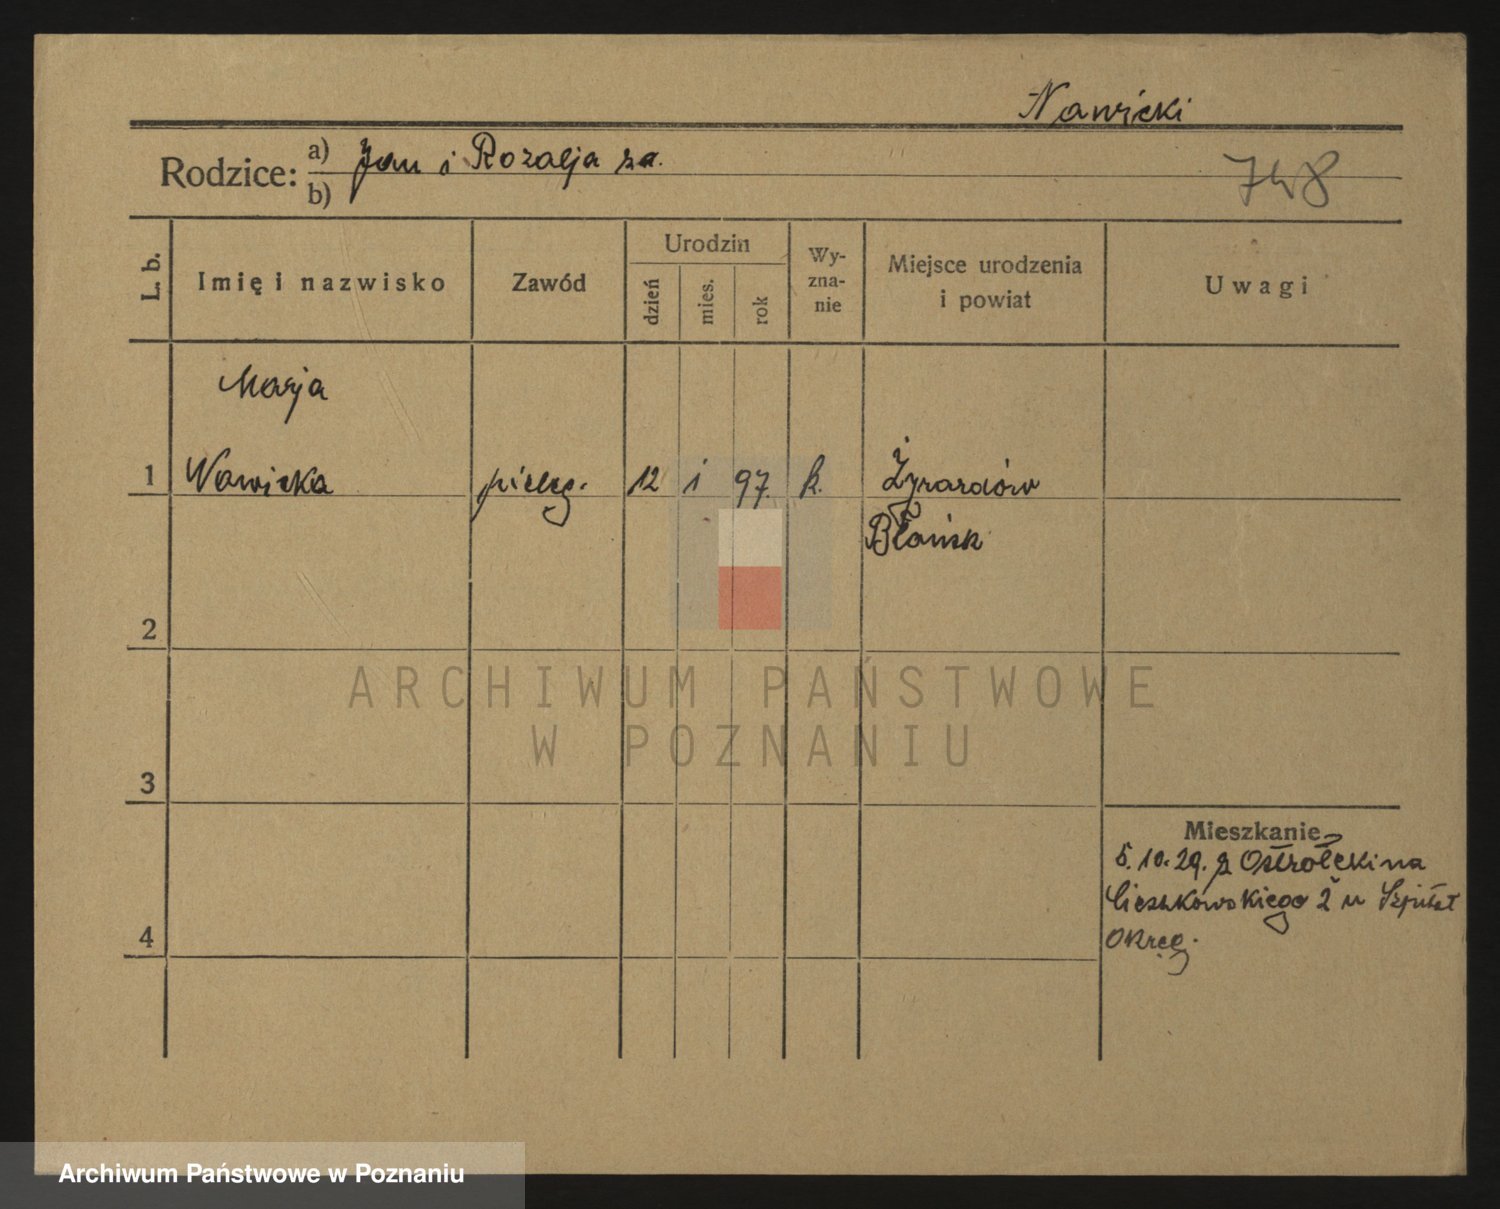 Nawicki
Rodzice: a) Jan i Rozalja za.
b)
748
L. b.
Imię i nazwisko
Zawód
Urodzin
dzień
mies.
rok
Wy-
zna-
nie
Miejsce urodzenia
i powiat
Uwagi
Marja
1 Nawicka pieleg. 12 i 97. k. Żyrardów
Błońsk
2
ARCHIWUM PAŃSTWOWE
W POZNANIU
3
Mieszkanie
5.10.29. z Ostrołęki na
Cieszkowskiego 2 u Szpitat
Okręg.
4
Archiwum Państwowe w Poznaniu